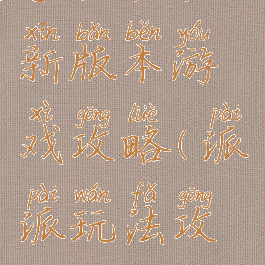 xīn bǎn běn yóu
新版本游
xì gōng lüè pài
戏攻略(派
pài wán fǎ gōng
派玩法攻